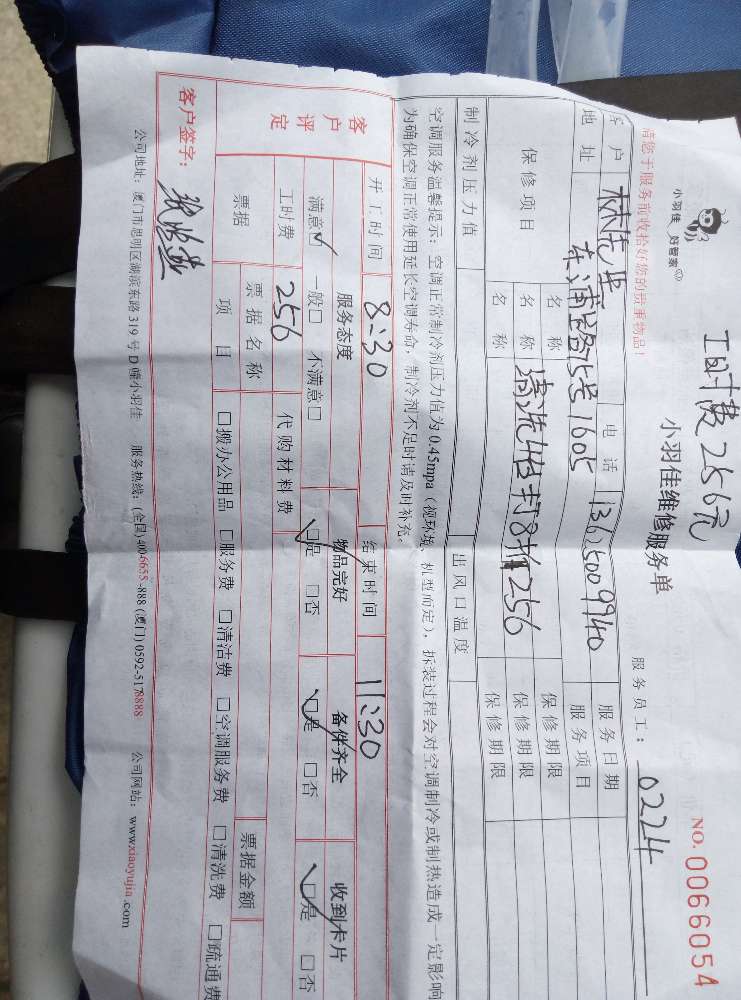 工时费256元
小羽佳 好管家
小羽佳维修服务单
NO. 0066054
请您于服务前收拾好您的贵重物品!
服务员工: 0224
客户 电话 13615009940 服务日期
地址 东浦路75号1605 服务项目
保修项目 名称 保修期限
名称 清洗 256 保修期限
名称 保修期限
制冷剂压力值 出风口温度
空调服务温馨提示: 空调正常制冷剂压力值为0.45mpa(视环境、机型而定), 拆装过程会对空调制冷或制热造成一定影响
为确保空调正常使用延长空调寿命, 制冷剂不足时请及时补充。
开工时间 8:30 结束时间 11:30
客户评定 服务态度 物品完好 备件齐全 收到卡片
满意☑ 一般□ 不满意□ ☑是 □否 ☑是 □否 ☑是 □否
工时费 256 代购材料费
票据 票据名称 票据金额
项目 □搬办公用品 □服务费 □清洁费 □空调服务费 □清洗费 □疏通费
客户签字:
公司地址: 厦门市思明区湖滨东路319号D幢小羽佳 服务热线: (全国)400-6655-888 (厦门)0592-5178888 公司网站: www.xiaoyujia.com